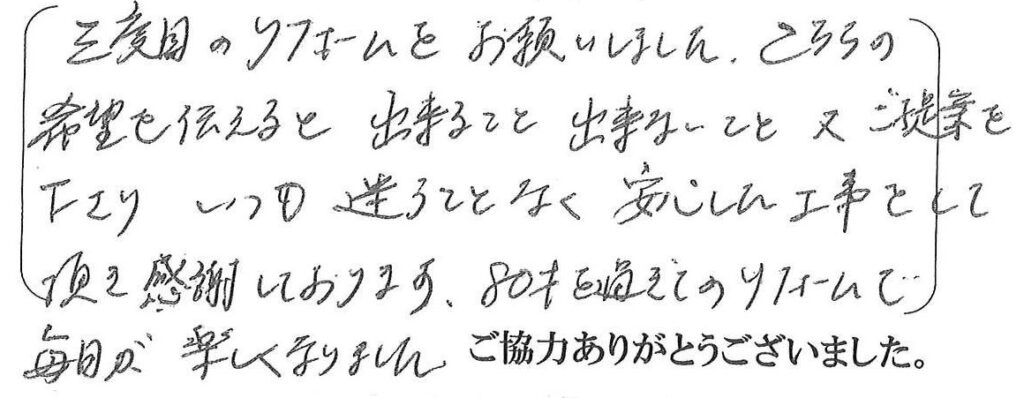 三度目のリフォームをお願いしました。こちらの
希望を伝えると 出来ること 出来ないこと 又 ご提案を
下さり いつも 迷うことなく 安心した工事をして
頂き 感謝しております。80才を過ぎてのリフォームで
毎日が 楽しくなりました。ご協力ありがとうございました。